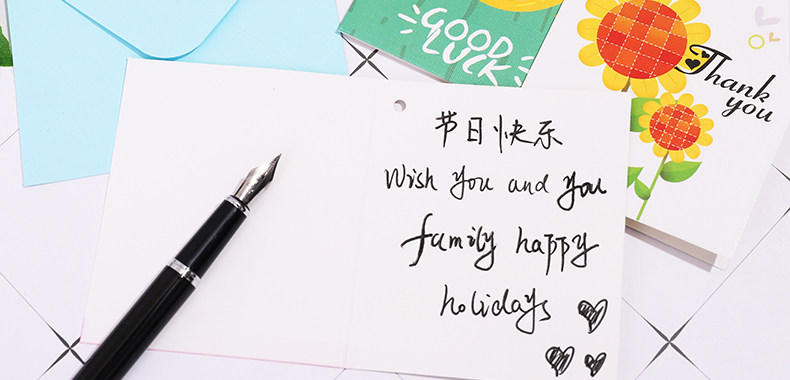 GOOD
LUCK
Thank
you
节日快乐
Wish you and you
family happy
holidays